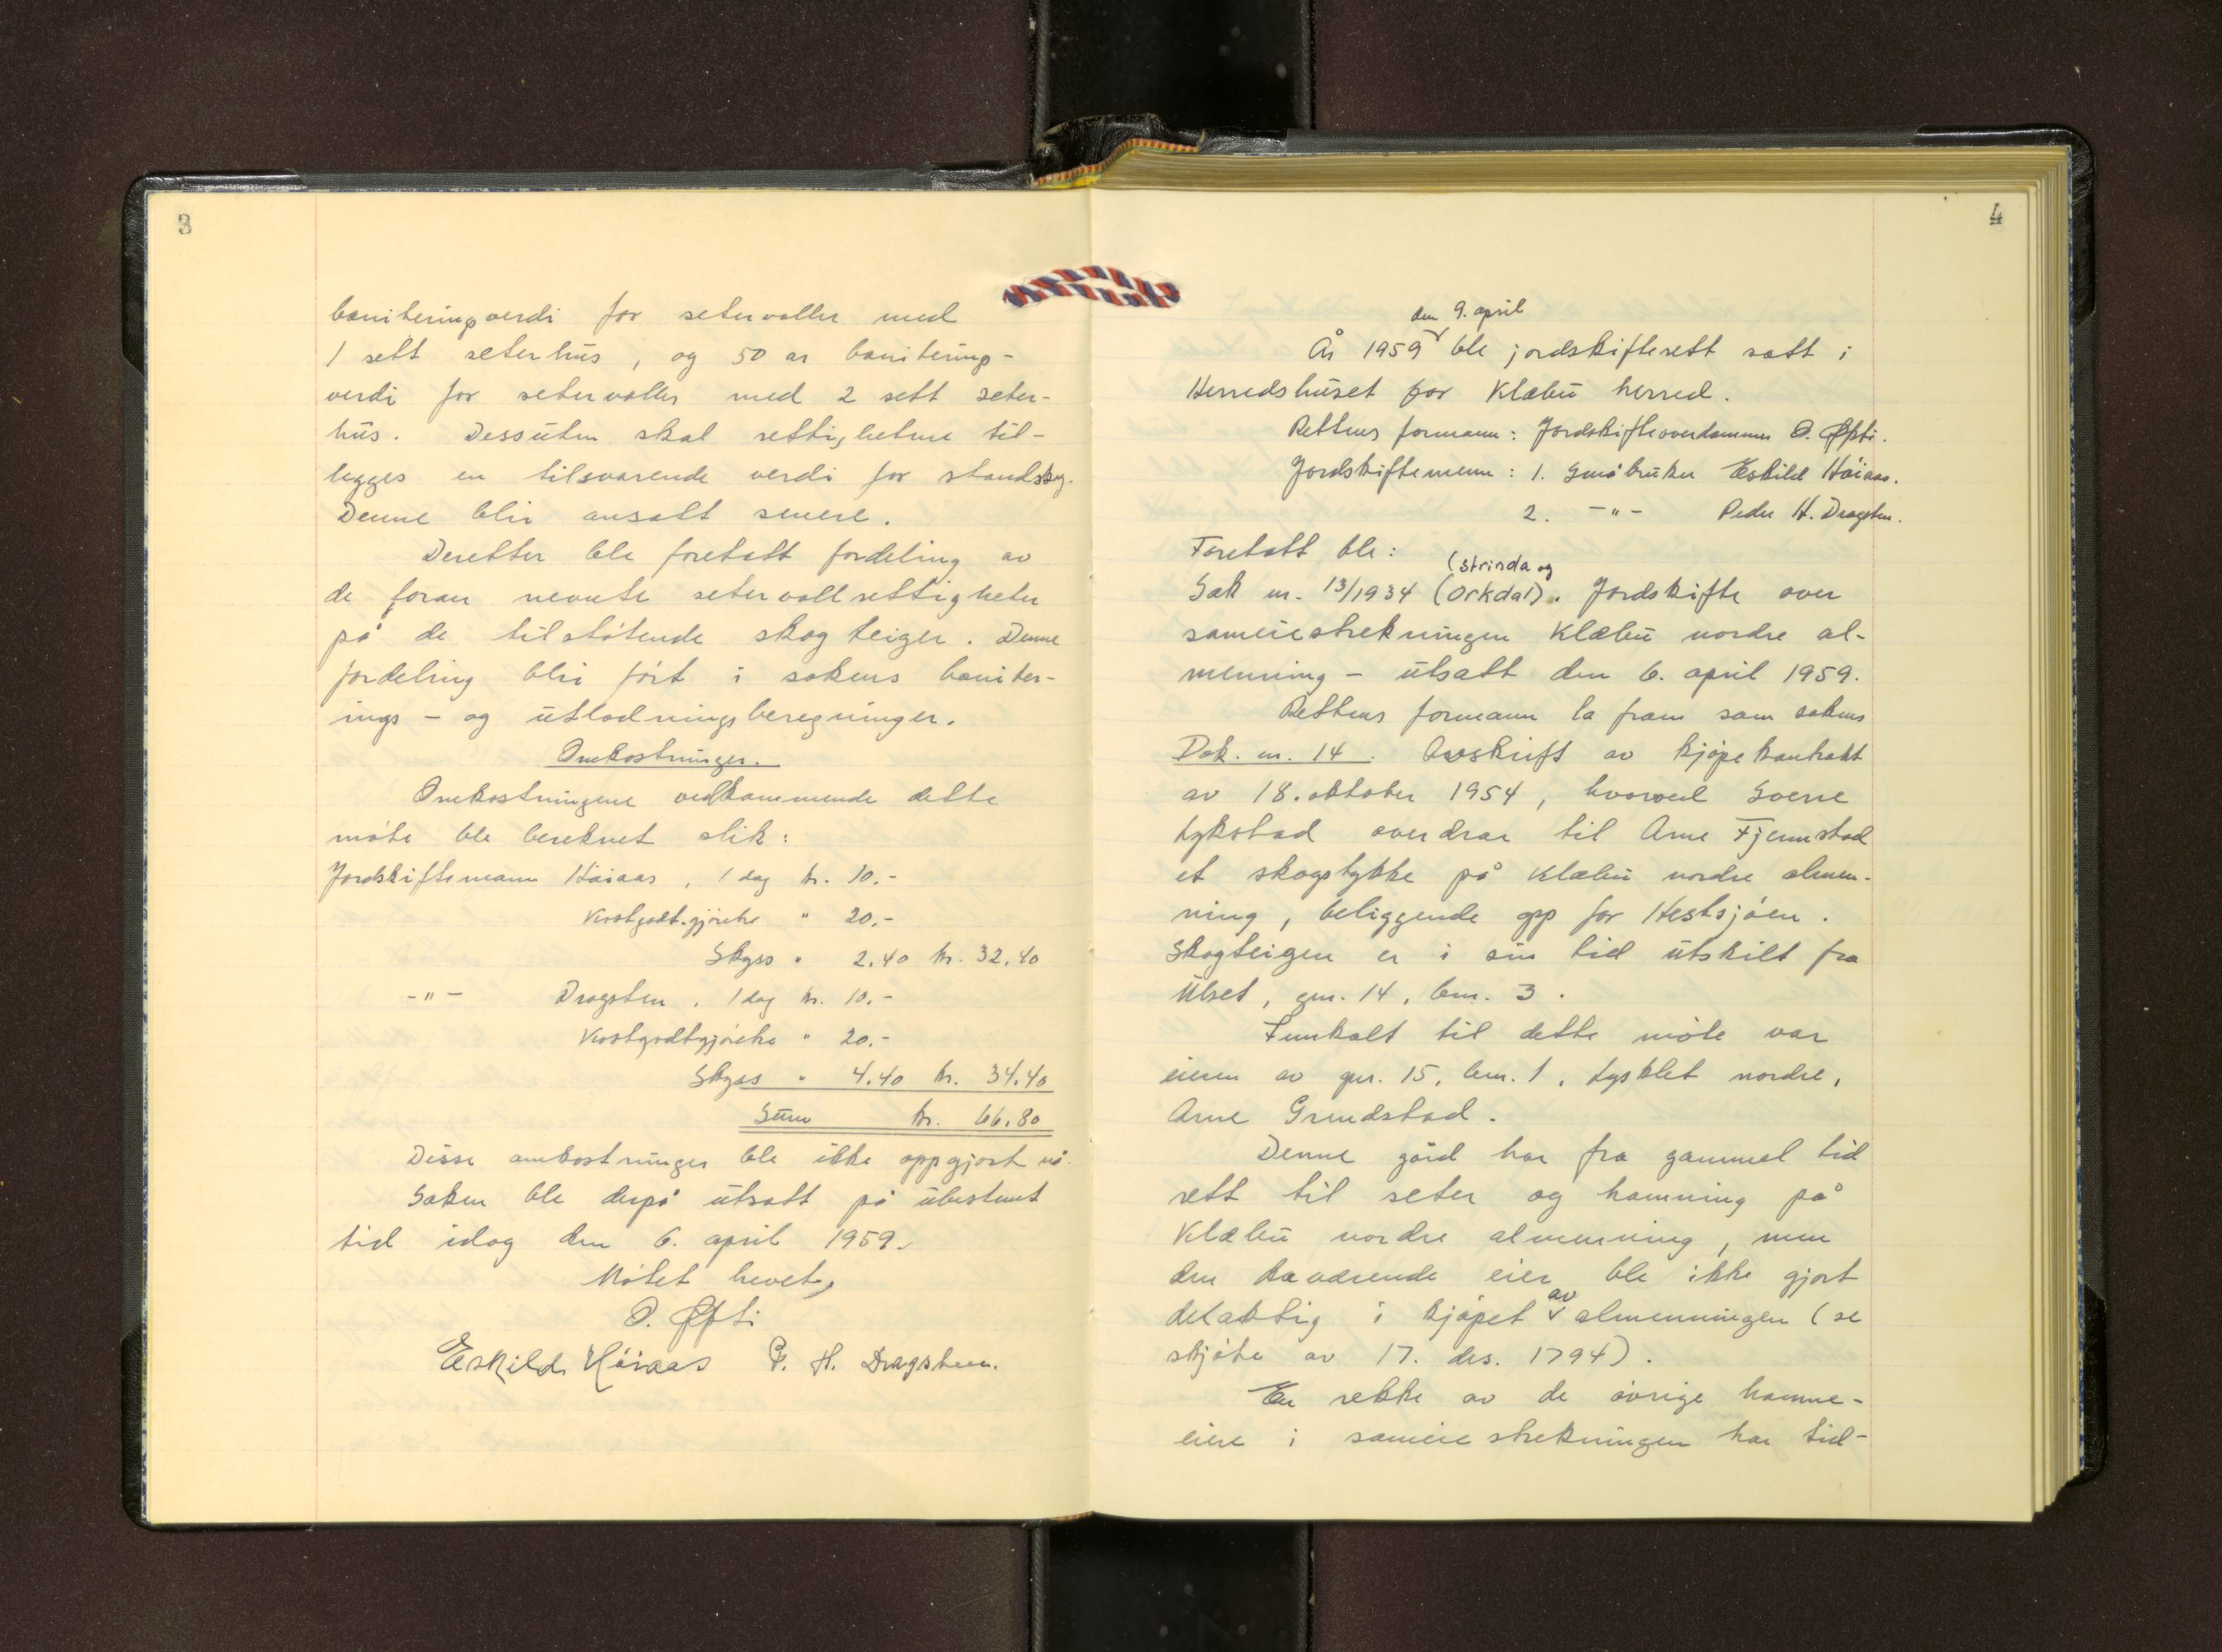 3
boniteringsverdi for setervoller med
1 sett seterhus, og 50 ar boniterings-
verdi for setervoller med 2 sett seter-
hus. Dessuten skal rettighetene til-
legges en tilsvarende verdi for standskog.
Denne blir ansatt senere.
Deretter ble foretatt fordeling av
de foran nevnte setervollrettigheter
på de tilstøtende skogteiger. Denne
fordeling blir ført i sakens boniter-
ings- og utlodningsberegninger.
Omkostninger.
Omkostningene vedkommende dette
møte ble bereknet slik:
Jordskiftemann Høiaas, 1 dag kr. 10.-
Kostgodt.gjørelse " 20.-
Skyss " 2.40 kr. 32.40
-"- Dragsten, 1 dag kr. 10.-
Kostgodtgjørelse " 20.-
Skyss " 4.40 kr. 34.40
Sum kr. 66.80
Disse omkostninger ble ikke oppgjort nå.
Saken ble derpå utsatt på ubestemt
tid idag den 6. april 1959.
Møtet hevet,
O. Øfsti
Eskild Høiaas P. H. Dragsten.
4
den 9. april
År 1959 ble jordskifterett satt i
Herredshuset for Klæbu herred.
Rettens formann: Jordskifteoverdommer O. Øfsti.
Jordskiftemenn: 1. Småbruker Eskild Høiaas.
2. -"- Peder H. Dragsten.
Foretatt ble:
(Strinda og
Sak nr. 13/1934 (Orkdal). Jordskifte over
sameiestrekningen Klæbu nordre al-
menning - utsatt den 6. april 1959.
Rettens formann la fram som sakens
Dok. nr. 14. Avskrift av kjøpekontrakt
av 18. oktober 1954, hvorved Sverre
Lykstad overdrar til Arne Fjermstad
et skogstykke på Klæbu nordre almen-
ning, beliggende opp for Hestsjøen.
Skogteigen er i sin tid utskilt fra
Ulset, gnr. 14, bnr. 3.
Innkalt til dette møte var
eieren av gnr. 15, bnr. 1, Lysklet nordre,
Arne Grendstad.
Denne gård har fra gammel tid
rett til seter og hamning på
Klæbu nordre almenning, men
den daværende eier ble ikke gjort
delaktig i kjøpet av almenningen (se
skjøte av 17. des. 1794).
En rekke av de øvrige hamne-
eiere i sameiestrekningen har tid-